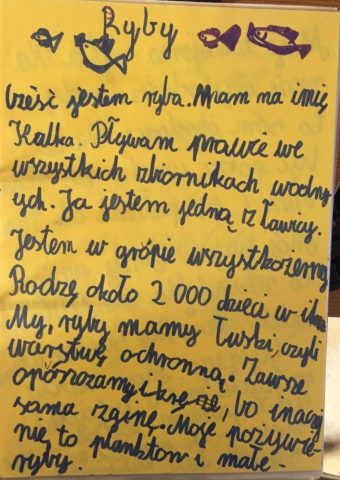 Ryby
Cześć jestem ryba. Mam na imię
Kalka. Pływam prawie we
wszystkich zbiornikach wodny
ych. Ja jestem jedną z Ławicy.
Jestem w grópie wszystkożernej
Rodzę około 2 000 dzieci w
My, ryby mamy Łuski, czyli
warstwę ochronną. Zawsze
opószczamy, bo inaczej
sama zginę. Moje pożywie-
nie to plankton i małe-
ryby.